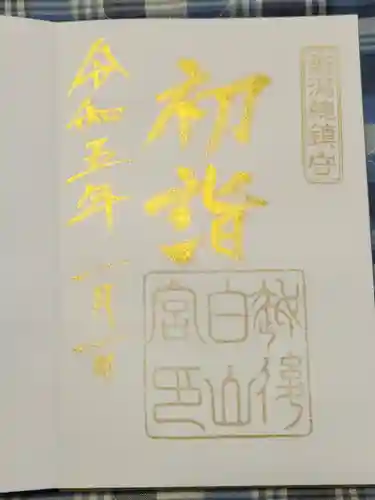 新潟総鎮守
初詣
越後
白山
宮印
令和五年一月一日